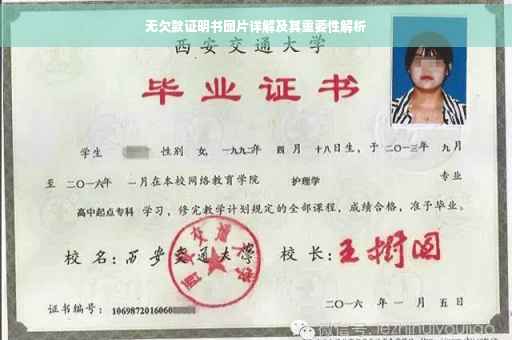 无欠款证明书图片详解及其重要性解析
西安交通大学
毕业证书
学生 性别 女, 一九九二年 四 月 十八日生, 于 二〇一三年 九月
至 二〇一六年 一月在本校网络教育学院 护理学 专业
高中起点专科 学习, 修完教学计划规定的全部课程, 成绩合格, 准予毕业。
校 名: 西安交通大学 校 长: 王树国
西安交通大学
证书编号: 1069872016060
二〇一六 年 一 月 五 日
微信号: jezhinuiyoujiao